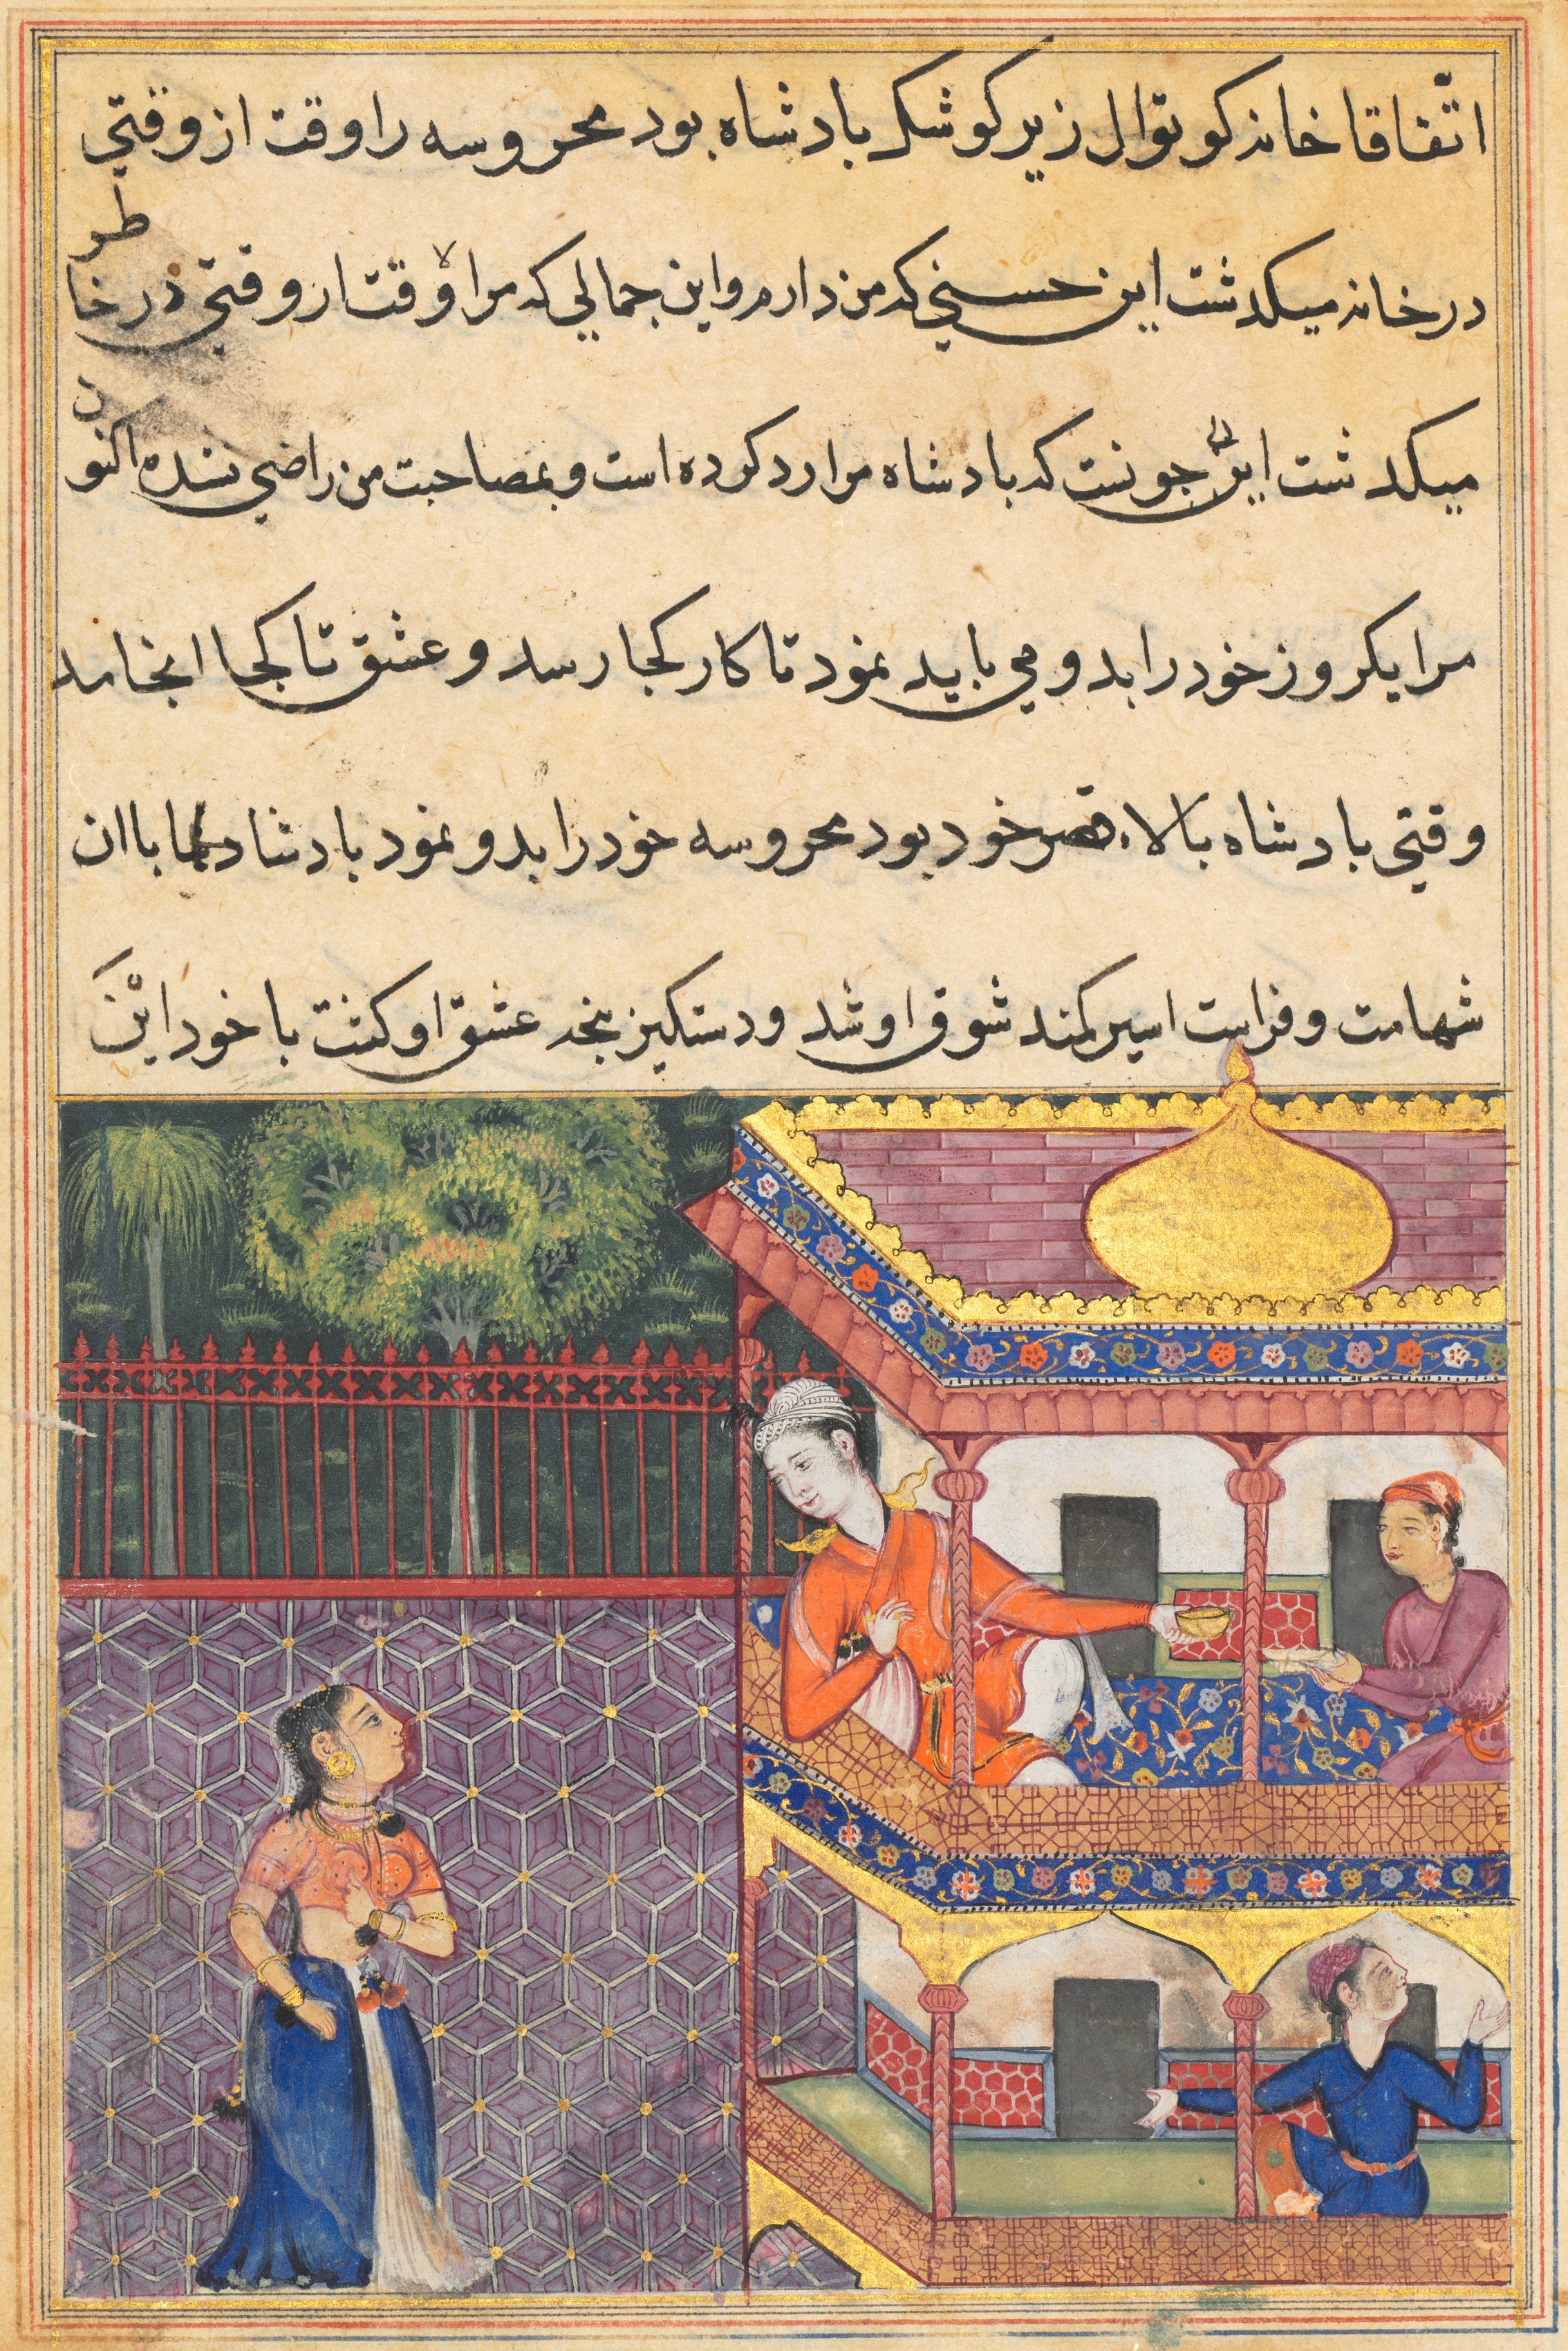 اتّفاقا خانه كوتوال زير كوشك بادشاه بود محروسه را وقت از وقتي
در خانه ميكدشت اين حسني كه من دارم و اين جمالي كه مرا وقت از وقتي در خاطر
ميكدشت اين جونست كه بادشاه مرا رد كرده است و بمصاحبت من راضي نشده اكنون
مرا يكروز خود را بدو مي بايد نمود تا كار كجا رسد و عشق تا كجا انجامد
وقتي بادشاه بالاء قصر خود بود محروسه خود را بدو نمود بادشاه با ان
شهامت و فراست اسير كمند شوق او شد و دستكير پنجه عشق او كشت با خود اين